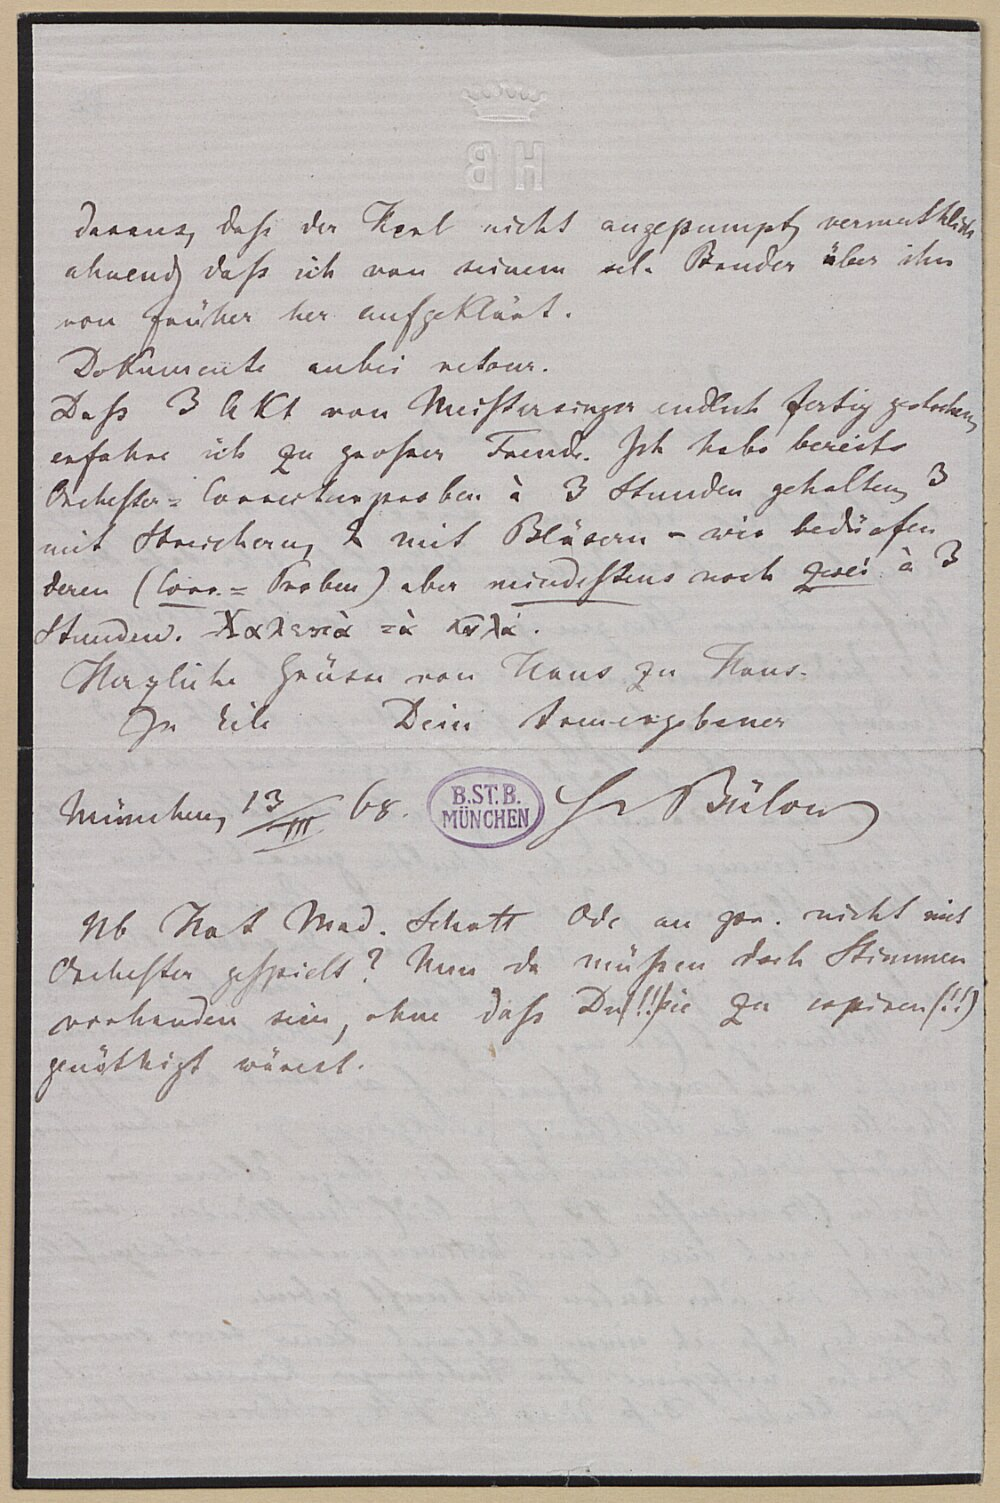 HB
daraus, daß der Kerl nicht angepumpt, vermuthlich
ahnend, daß ich von seinem sel. Bruder über ihn
von früher her aufgeklärt.
Dokumente anbei retour.
Daß 3 Akt von Meistersinger endlich fertig gestochen,
erfahre ich zu großer Freude. Ich habe bereits
Orchester-Correcturproben à 3 Stunden gehalten, 3
mit Streichern, 2 mit Bläsern – wir bedürfen
deren (Corr.-Proben) aber mindestens noch zwei à 3
Stunden. Χαλεπὰ τὰ καλά.
Herzliche Grüße von Haus zu Haus.
In Eile Dein treuergebener
München, 13/III 68.
B.ST.B.
MÜNCHEN
Hv Bülow
Nb Hat Mad. Schott Ode an nicht mit
Orchester gespielt? Nun da müßen doch Stimmen
vorhanden sein, ohne daß Du (!!) sie zu copiren (!!)
genöthigt wärest.